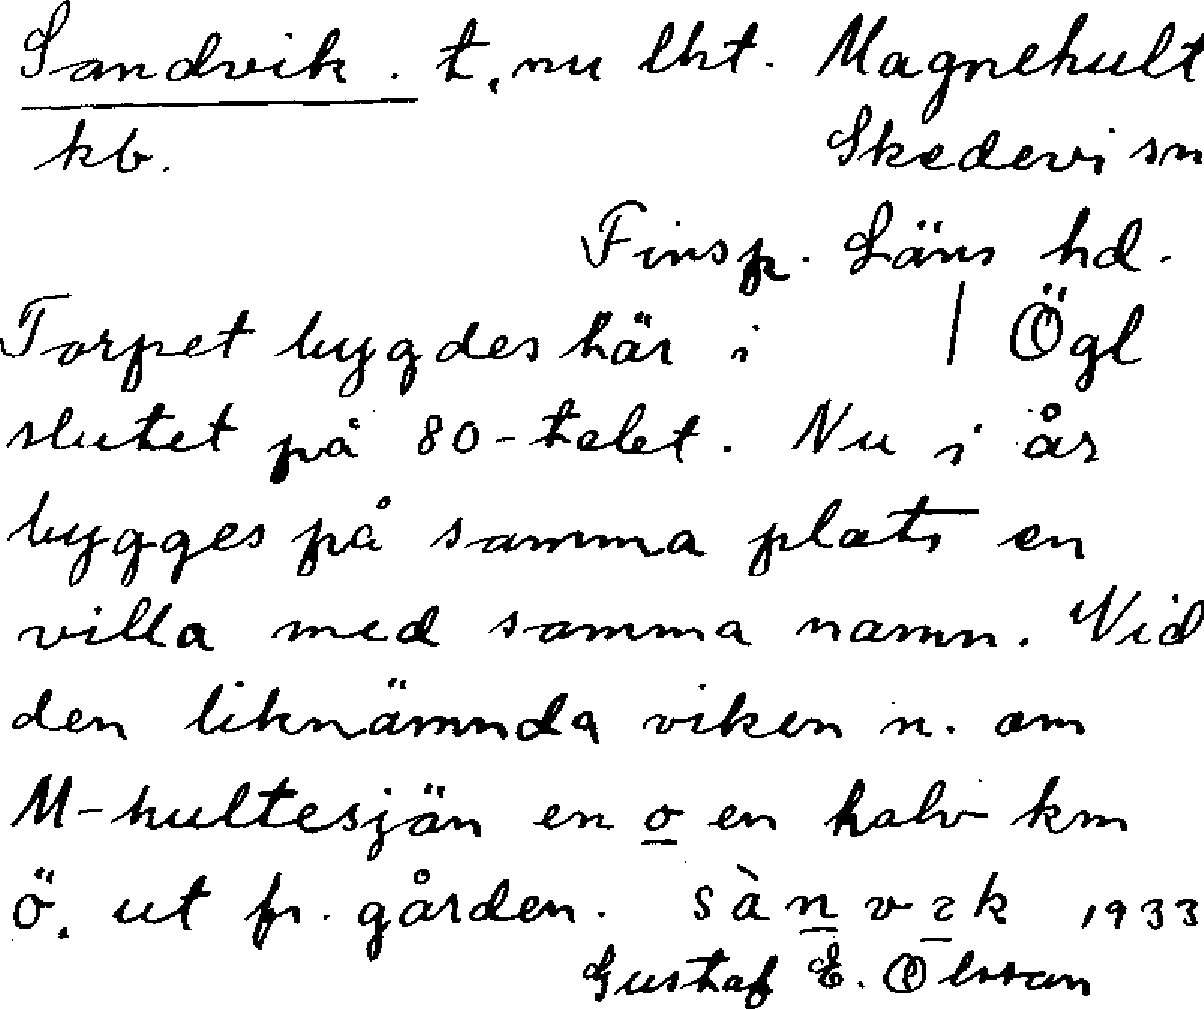 Sandvik. t, nu lht. Magnehult
kb. Skedevi sn
Finsp. Läns hd.
Torpet bygdes här i | Ögl
slutet på 80-talet. Nu i år
bygges på samma plats en
villa med samma namn. Vid
den liknämnda viken n. om
M-hultesjän en o en halv km
ö. ut fr. gården. sànvik 1933
Gustaf E. Olsson